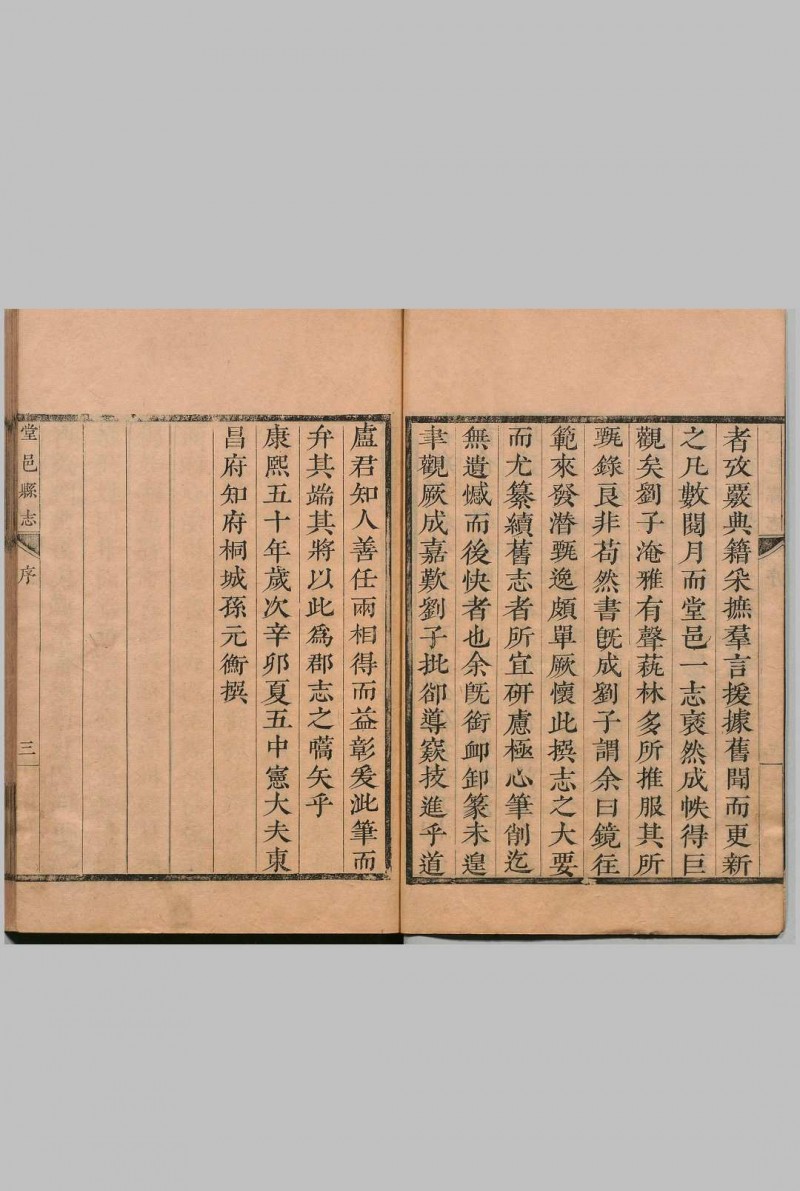 者攷覈典籍采摭羣言援據舊聞而更新
之凡數閱月而堂邑一志裒然成帙得巨
觀矣劉子淹雅有聲蓺林多所推服其所
甄錄良非苟然書旣成劉子謂余曰鏡徃
範來發潛甄逸頗單厥懷此撰志之大要
而尤纂續舊志者所宜硏慮極心筆削迄
無遺憾而後快者也余旣銜卹卸篆未遑
聿觀厥成嘉歎劉子批郤導窾技進乎道
盧君知人善任兩相得而益彰爰泚筆而
弁其端其將以此爲郡志之嚆矢乎
康熙五十年歲次辛卯夏五中憲大夫東
昌府知府桐城孫元衡撰
堂邑縣志
序
三